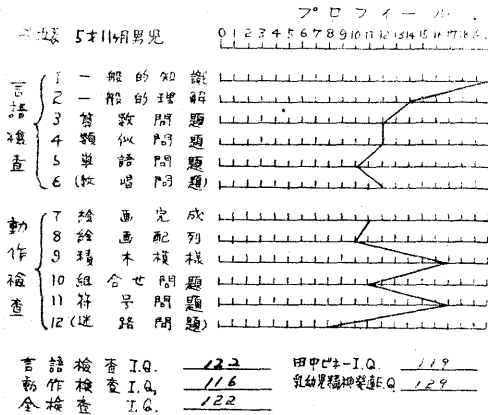 プロフィール
5才11ヶ月男児
0 1 2 3 4 5 6 7 8 9 10 11 12 13 14 15 16 17 18
言語検査
1 一般的知識
2 一般的理解
3 算数問題
4 類似問題
5 単語問題
6 (数唱問題)
動作検査
7 絵画完成
8 絵画配列
9 積木模様
10 組合せ問題
11 符号問題
12 (迷路問題)
言語検査I.Q. 122
動作検査I.Q. 116
全検査I.Q. 122
田中ビネーI.Q. 119
乳幼児精神発達E.Q 129